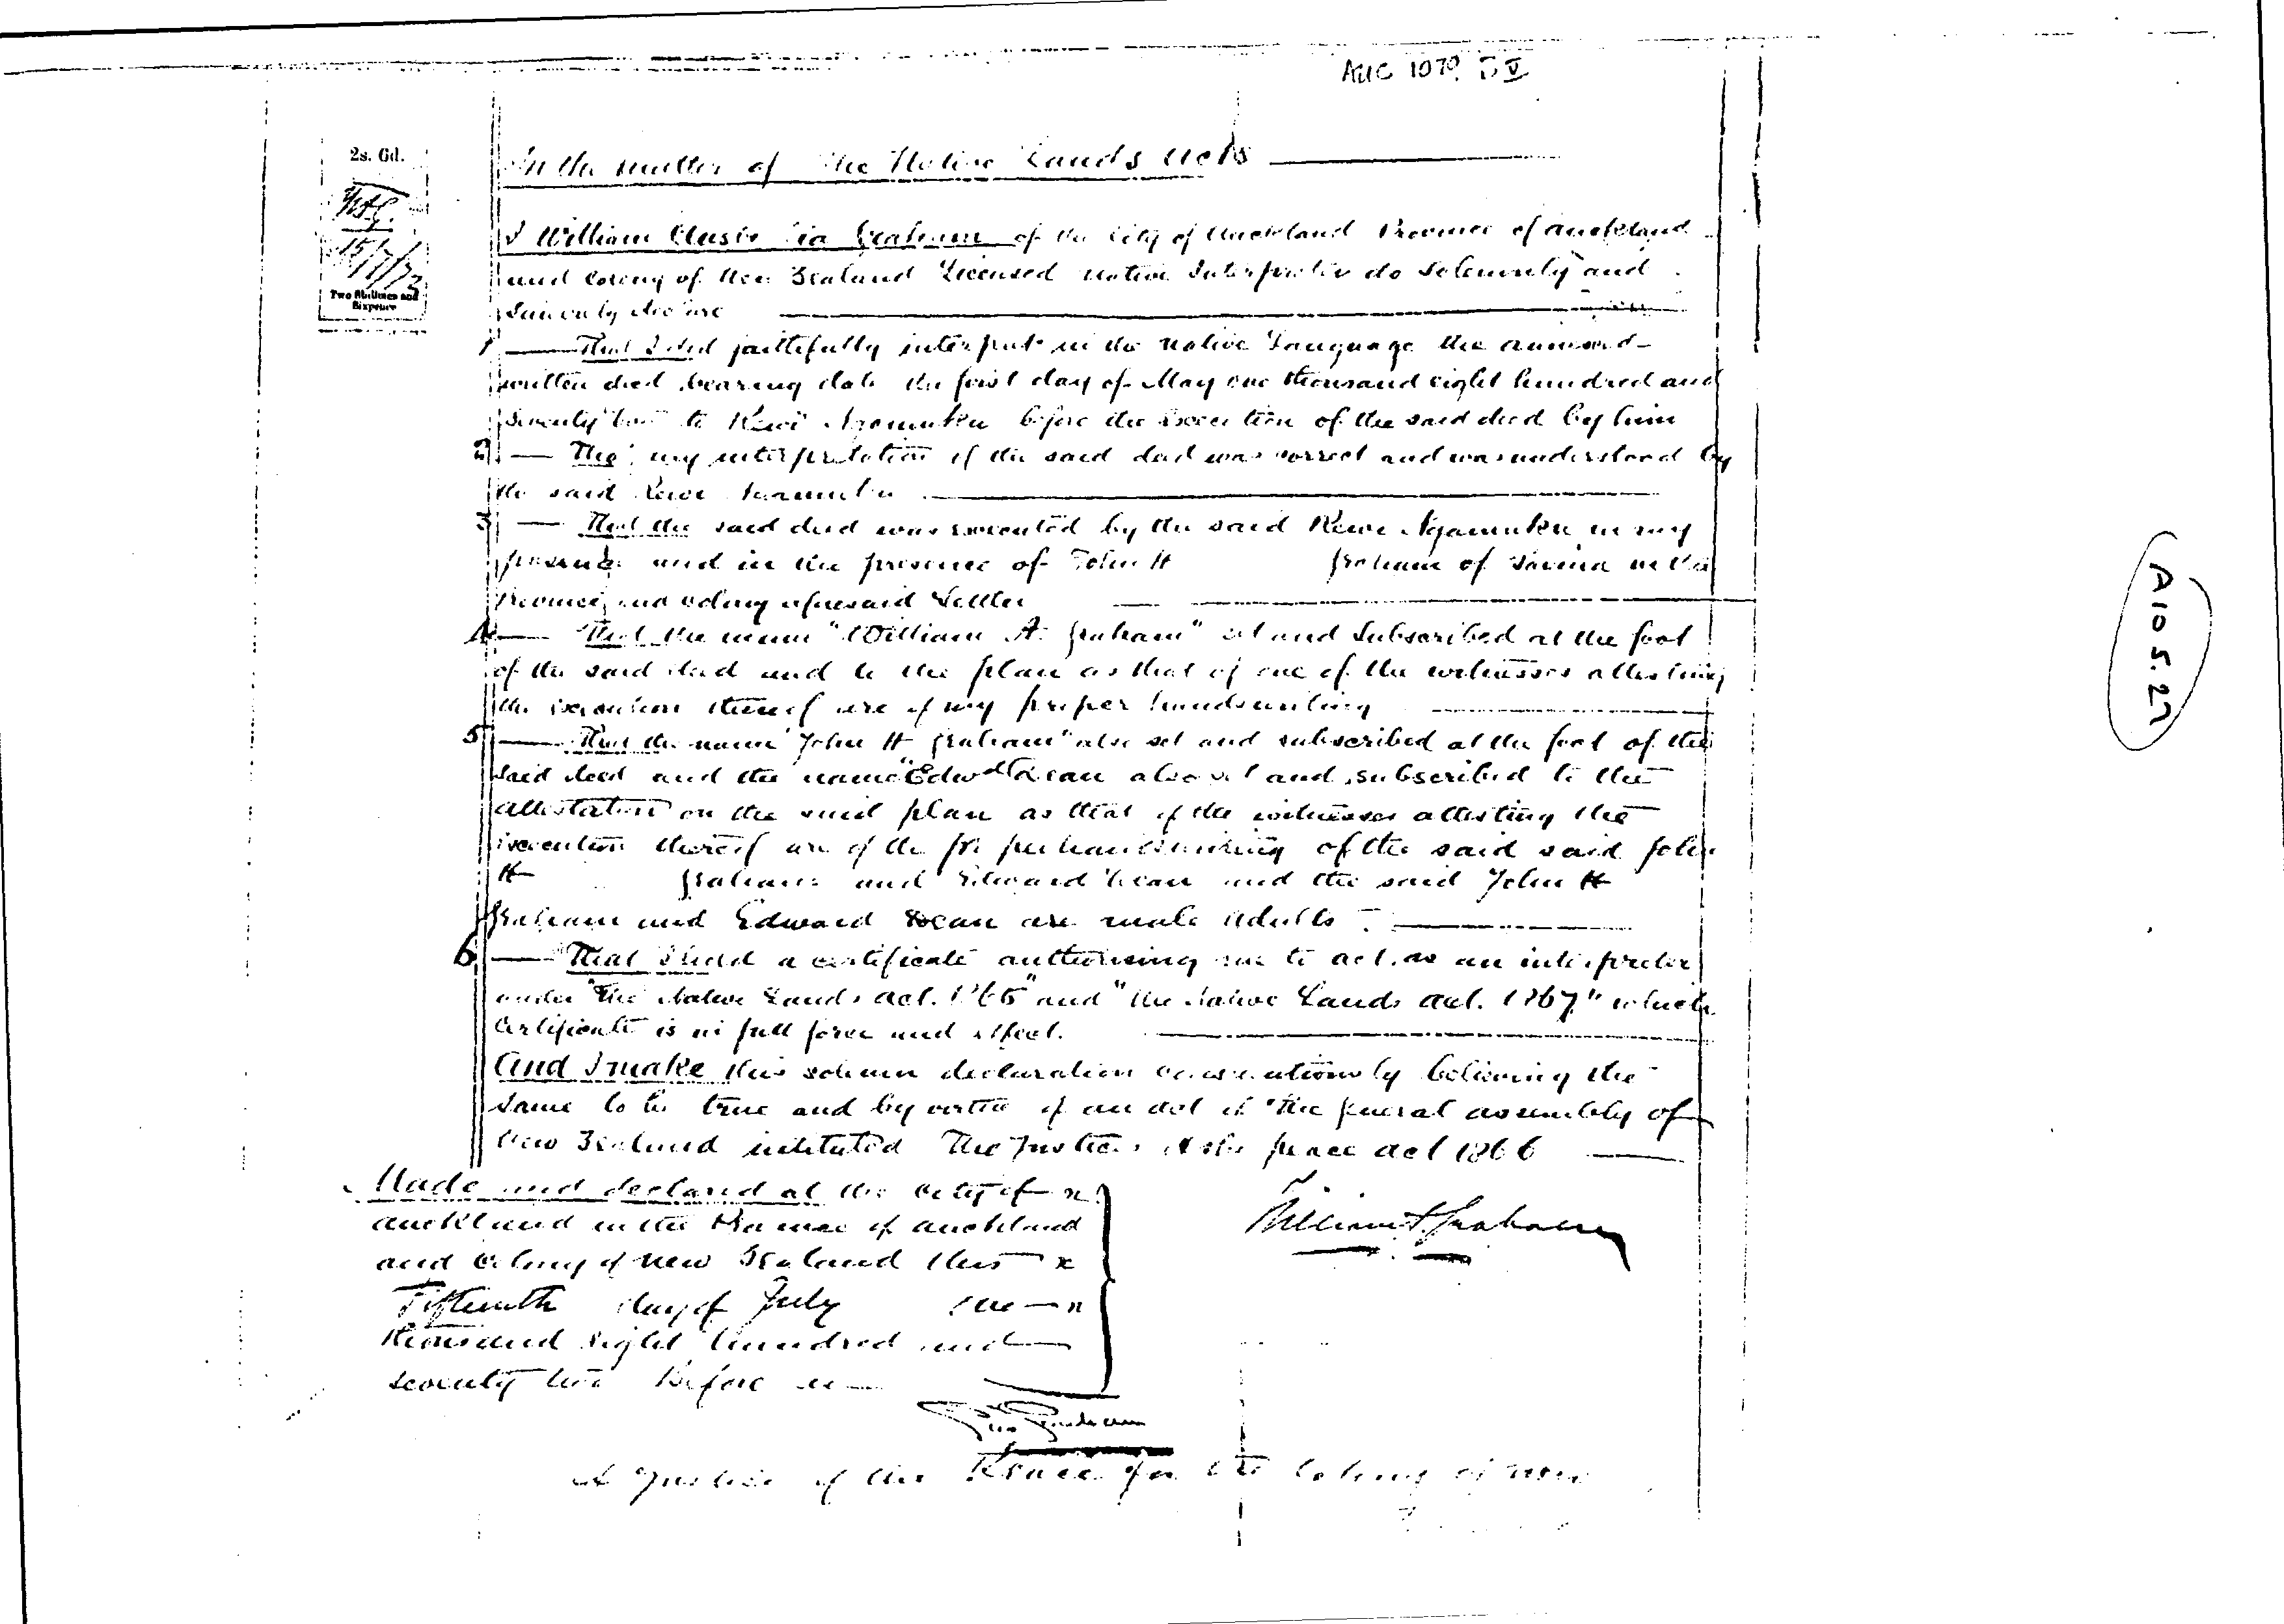 AUC 1070
2s. 6d.
15/7/72
Two Shillings and
Sixpence
In the matter of The Native Lands Acts
I William Graham of the City of Auckland Province of Auckland
and Colony of New Zealand Licensed Native Interpreter do Solemnly and
Sincerely declare
1 That I did faithfully interpret in the Native Language the annexed
written deed bearing date the first day of May one thousand eight hundred and
Seventy two to Rewi before the execution of the said deed by him
2 That my interpretation of the said deed was correct and was understood by
the said Rewi
3 That the said deed was executed by the said Rewi Ngamuka in my
presence and in the presence of John H Graham of in the
Province and Colony aforesaid Settler
4 That the name "William A. Graham" set and Subscribed at the foot
of the said deed and to the plan as that of one of the witnesses attesting
the execution thereof are of my proper handwriting
5 That the name "John H Graham" also set and subscribed at the foot of the
said deed and the name "Edwd Dean also set and subscribed to the
attestation on the said plan as that of the witnesses attesting the
execution thereof are of the proper handwriting of the said said John
H Graham and Edward Dean and the said John H
Graham and Edward Dean are male adults
6 That I hold a certificate authorising me to act as an interpreter
under "The Native Lands Act. 1865" and "the Native Lands Act. 1867" which
Certificate is in full force and effect.
And I make this solemn declaration conscientiously believing the
same to be true and by virtue of an Act of the General Assembly of
New Zealand intituled The Justices of the peace Act 1866
Made and declared at the City of
Auckland in the Province of Auckland
and Colony of New Zealand this
Fifteenth day of July one
thousand eight hundred and
seventy two Before me
William A. Graham
A Justice of the Peace for the Colony of New
A105.27